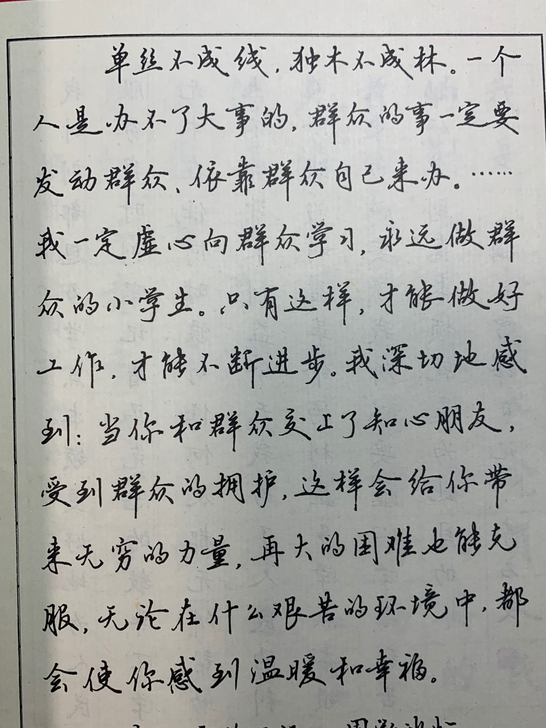 单丝不成线，独木不成林。一个
人是办不了大事的，群众的事一定要
发动群众、依靠群众自己来办。……
我一定虚心向群众学习，永远做群
众的小学生。只有这样，才能做好
工作，才能不断进步。我深切地感
到：当你和群众交上了知心朋友，
受到群众的拥护，这样会给你带
来无穷的力量，再大的困难也能克
服，无论在什么艰苦的环境中，都
会使你感到温暖和幸福。